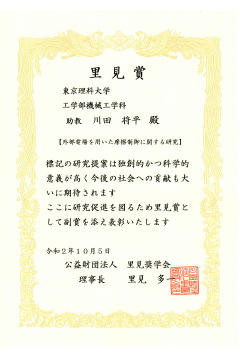 里見賞
東京理科大学
工学部機械工学科
助教 川田 将平 殿
【外部電場を用いた摩擦制御に関する研究】
標記の研究提案は独創的かつ科学的
意義が高く今後の社会への貢献も大
いに期待されます
ここに研究促進を図るため里見賞と
して副賞を添え表彰いたします
令和2年10月5日
公益財団法人 里見奨学会
理事長 里見 多一